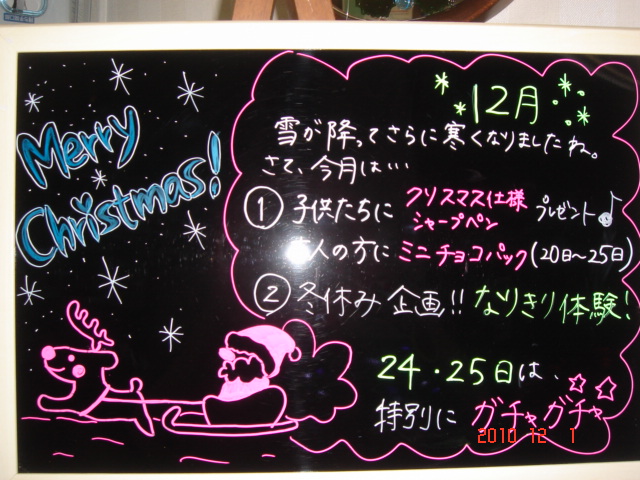 Merry
Christmas!
12月
雪が降ってさらに寒くなりましたね。
さて、今月は…
① 子供たちに クリスマス仕様 シャープペン プレゼント♪
人の方に ミニチョコパック(20日~25日)
② 冬休み 企画!! なりきり体験!
24・25日は、
特別に ガチャガチャ
2010 12 1